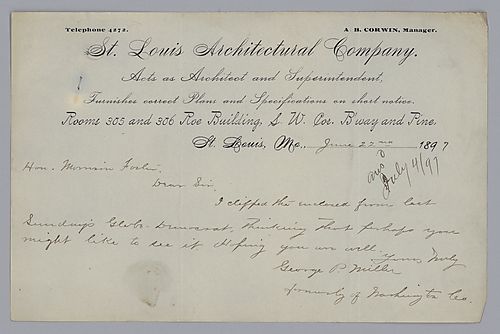 Telephone 4272.
A. B. CORWIN, Manager.
St. Louis Architectural Company.
Acts as Architect and Superintendent,
Furnishes correct Plans and Specifications on short notice.
Rooms 305 and 306 Roe Building, S. W. Cor. B'way and Pine.
St. Louis, Mo., June 27 1897
ansd
July 4/97
Hon. Morrison Foster,
Dear Sir,
I clipped the enclosed from last
Sunday's Globe-Democrat, thinking that perhaps you
might like to see it. Hoping you are well.
Yours truly
George P. Miller
formerly of Washington Co.